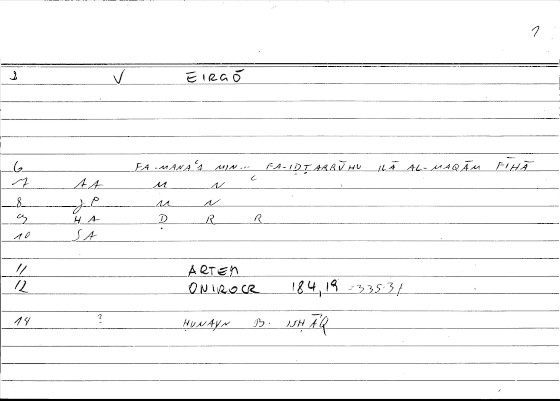 1
1 V EIRGŌ
6 FA-MANAʿA MIN... FA-IḌṬARRŪHU ILĀ AL-MAQĀM FĪHĀ
7 AA M N ʿ
8 JP M N
9 HA Ḍ R R
10 SA
11 ARTEM
12 ONIROCR 184,19 =335.31
14 ? ḤUNAYN B. ISḤĀQ